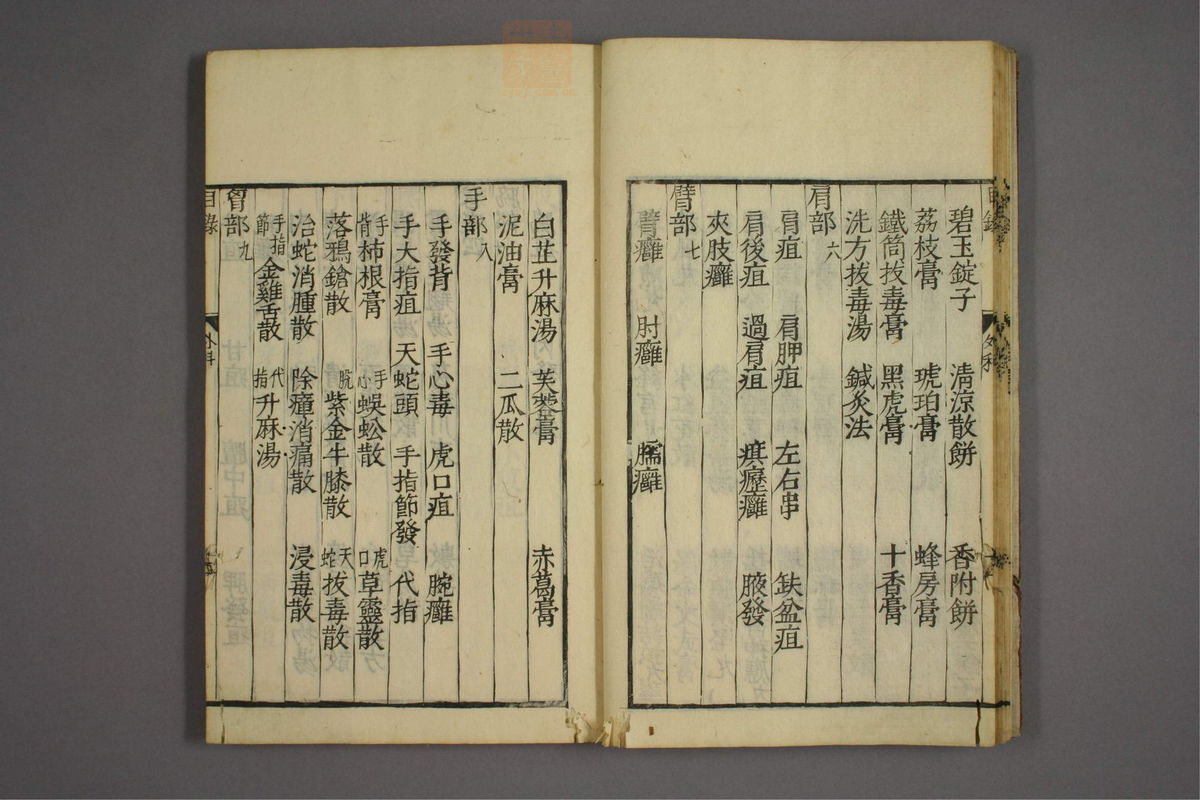 碧玉錠子 清涼散餅 香附餅
荔枝膏 琥珀膏 蜂房膏
鐵筒拔毒膏 黑虎膏 十香膏
洗方拔毒湯 鍼灸法
肩部六
肩疽 肩胛疽 左右串 缺盆疽
肩後疽 過肩疽 癧癰 腋發
夾肢癰
臂部七
臂癰 肘癰 臑癰
白芷升麻湯 芙蓉膏 赤葛膏
泥油膏 二瓜散
手部八
手發背 手心毒 虎口疽 腕癰
手大指疽 天蛇頭 手指節發 代指
手背柿根膏 手心蜈蚣散 虎口草靈散
落鴉鎗散 脫紫金牛膝散 天蛇拔毒散
治蛇消腫散 除㾮消痛散 浸毒散
手指節金雞舌散 代指升麻湯
胷部九
目錄 外科